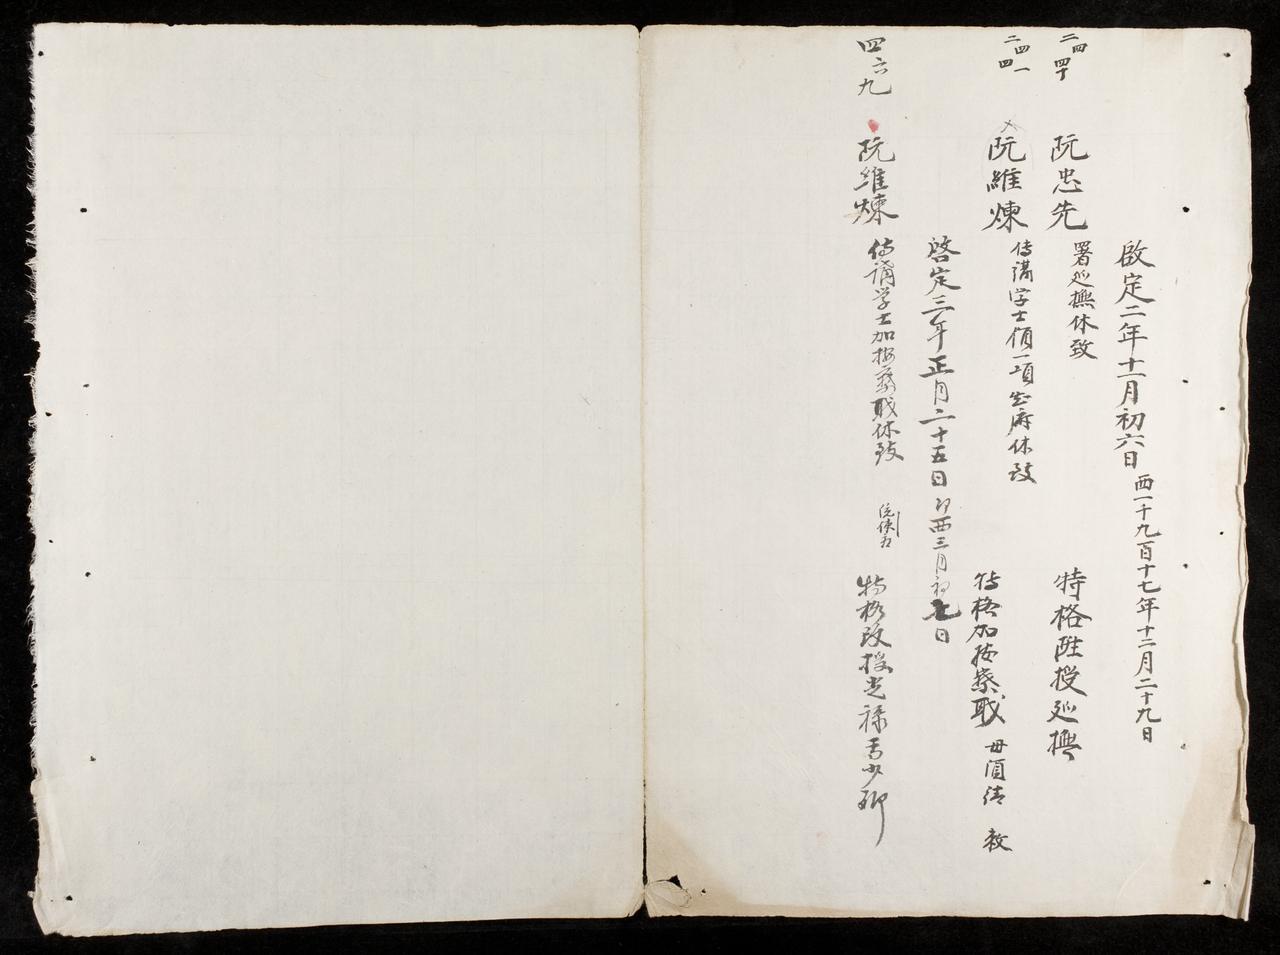 啟定二年十一月初六日 西一千九百十七年十二月二十九日
二四四十 阮忠先 署巡撫休致 特格陞授巡撫
二四一四 阮維煉 侍講学士領一項知府休致 特格加按察職 毋須請敕
啓定三年正月二十五日 即西三月初七日
四六九 阮維煉 侍講学士加按察職休致 特格改授光禄寺少卿